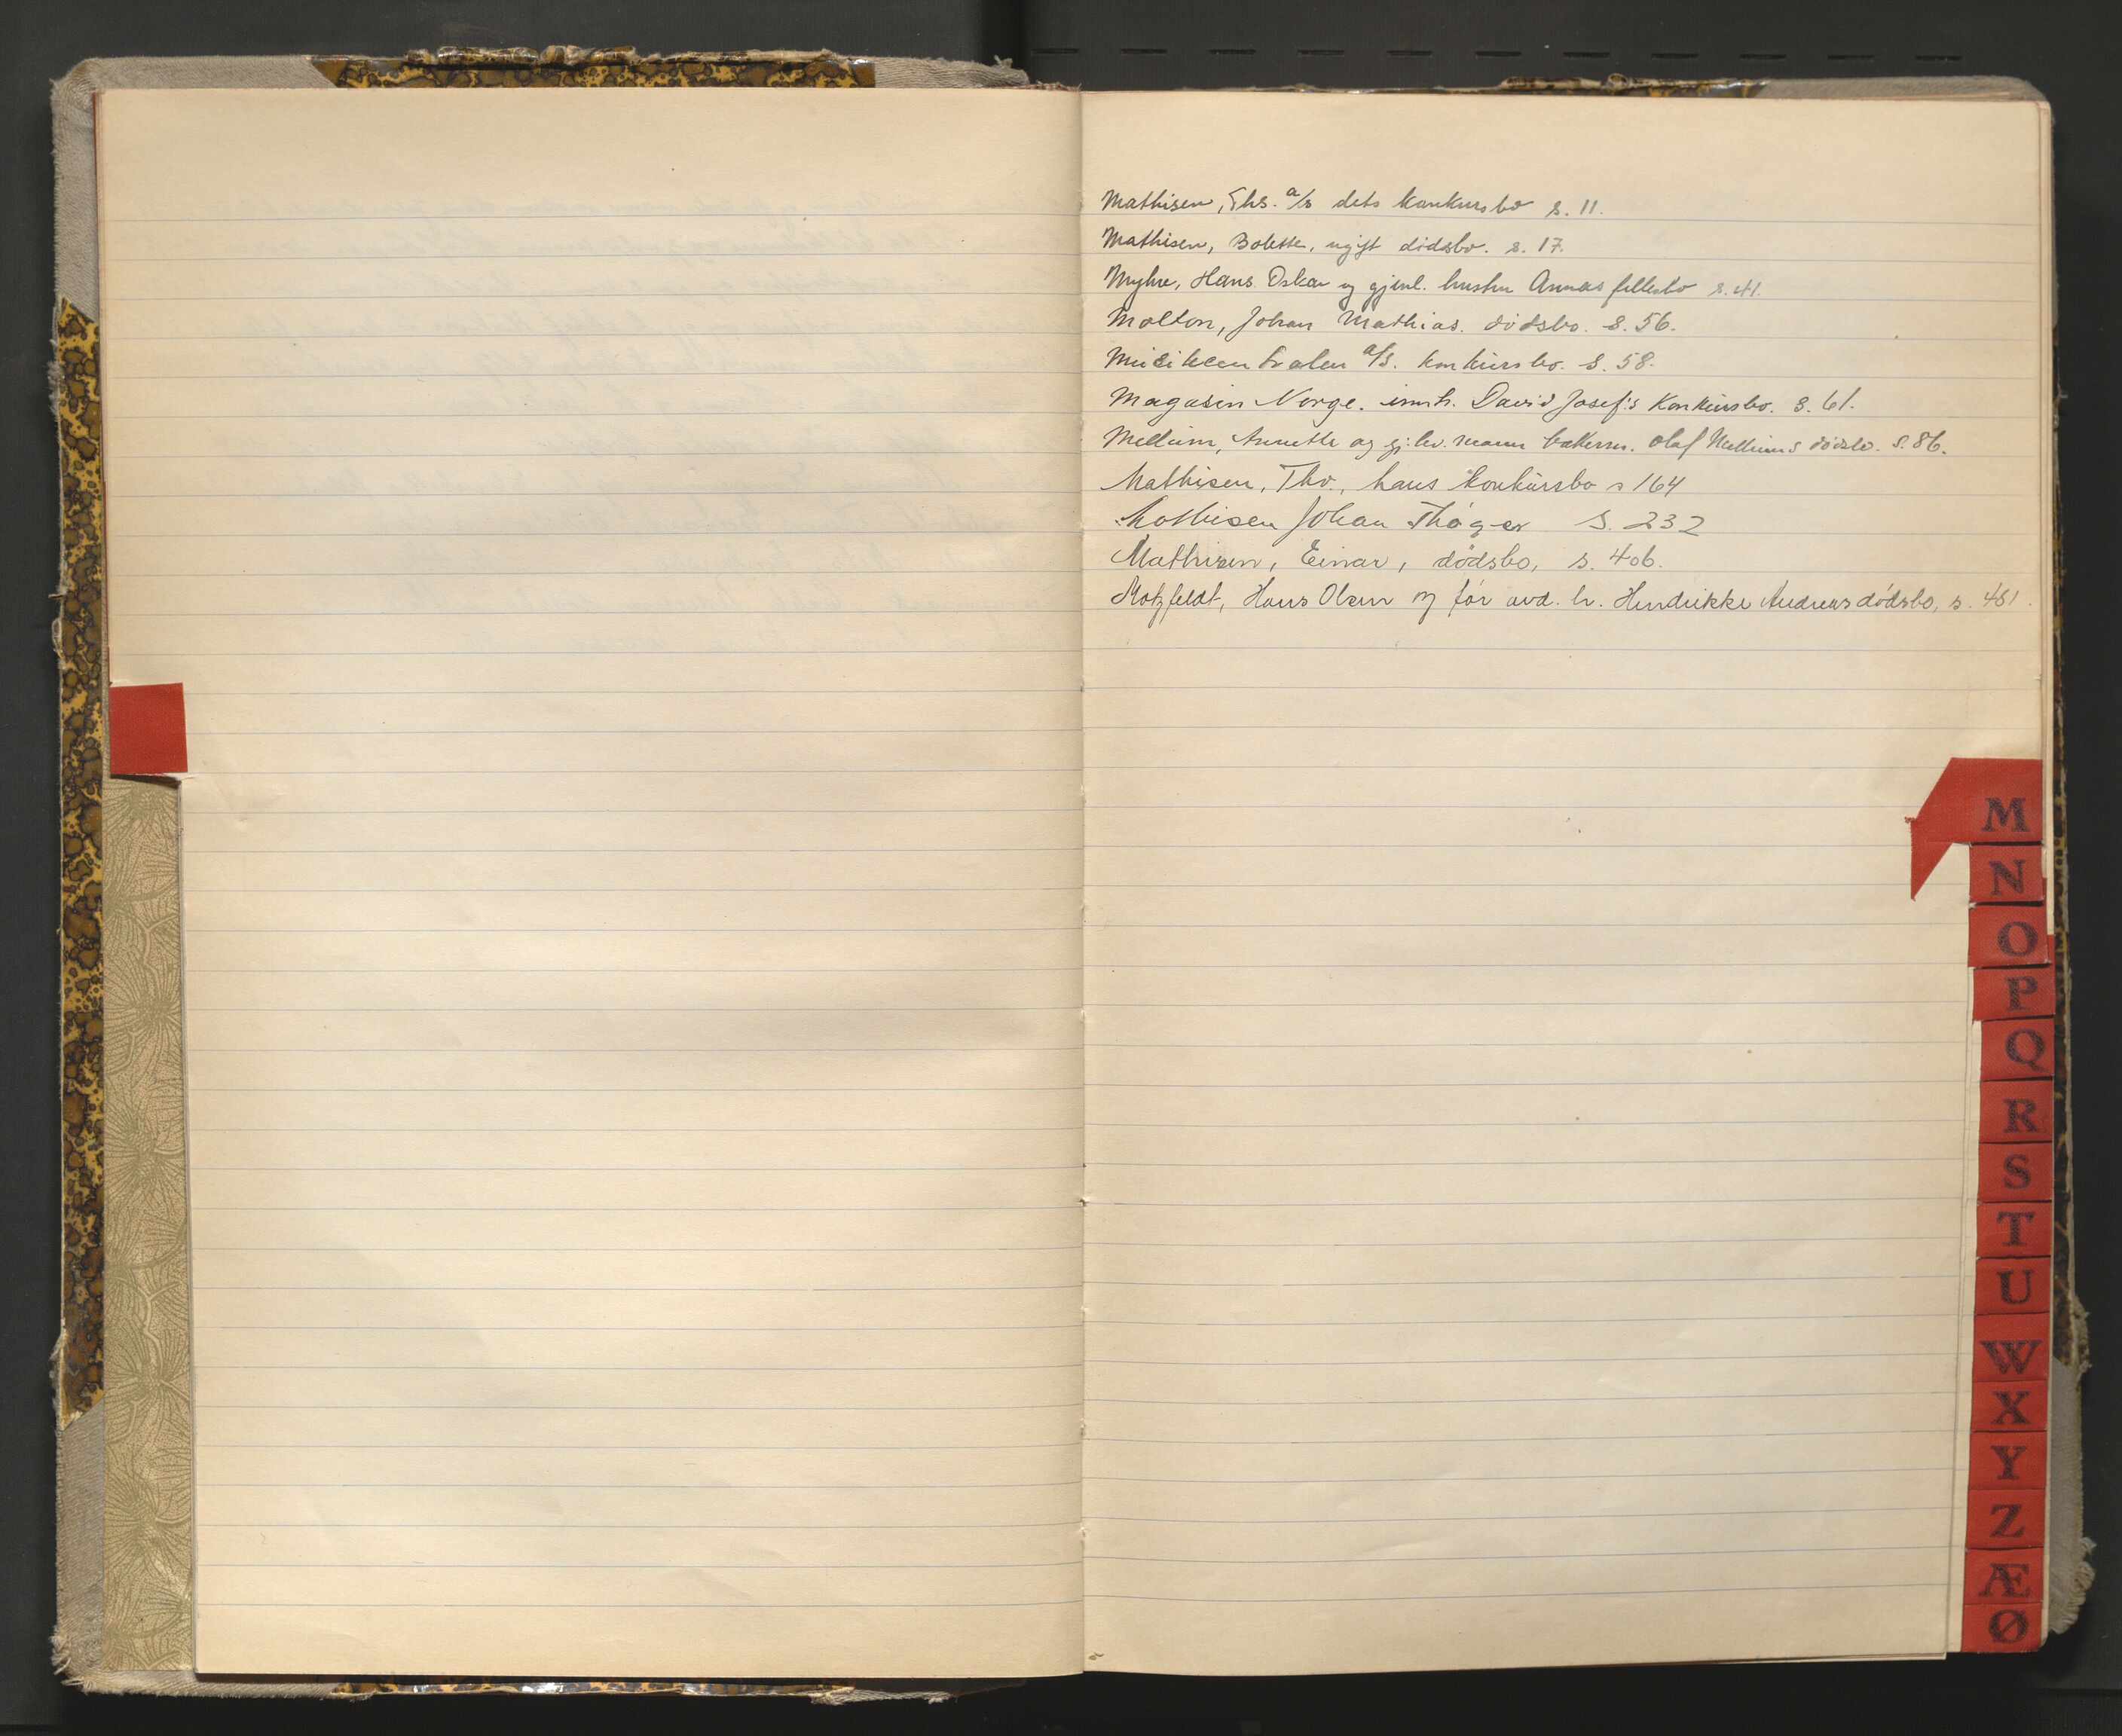 Mathisen, Ths. a/s dets konkursbo s. 11.
Mathisen, Bolette, ugift dödsbo. s. 17.
Myhre, Hans Oskar og gjenl. hustru Annas fellesbo s. 41.
Molton, Johan Mathias. dödsbo. s. 56.
Musikcentralen a/s. konkursbo. s. 58.
Magasin Norge. innh. David Josef's Konkursbo. s. 61.
Mellum, Annette og gj.lev. mann bakerm. Olaf Mellums dödsbo. s. 86.
Mathisen, Thv., hans konkursbo s 164
Mathisen Johan Thoger s. 232
Mathisen, Einar, dödsbo, s. 406.
Motzfeldt, Hans Olsen og før avd. h. Hendrikke Andreas dødsbo, s. 481.
M
N
O
P
Q
R
S
T
U
W
X
Y
Z
Æ
Ø